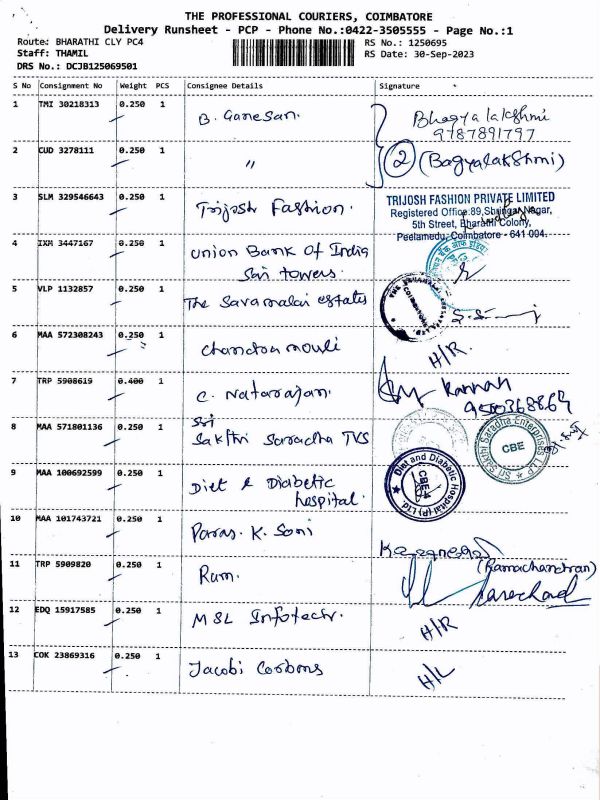 THE PROFESSIONAL COURIERS, COIMBATORE
Delivery Runsheet - PCP - Phone No.:0422-3505555 - Page No.:1
Route: BHARATHI CLY PC4 RS No.: 1250695
Staff: THAMIL RS Date: 30-Sep-2023
DRS No.: DCJB125069501
S No Consignment No Weight PCS Consignee Details Signature
1 TMI 30218313 0.250 1 B. Ganesan. Bhagyalakshmi
9787891797
2 CUD 3278111 0.250 1 〃 2 (Bagyalakshmi)
3 SLM 329546643 0.250 1 Trijosh Fashion.
TRIJOSH FASHION PRIVATE LIMITED
Registered Office:89,Shringar Nagar,
5th Street, Bharathi Colony,
Peelamedu, Coimbatore - 641 004.
4 IXM 3447167 0.250 1 Union Bank Of India
Sai towers.
5 VLP 1132857 0.250 1 The Savamalai estates
6 MAA 572308243 0.250 1 Chandra mouli H/R.
7 TRP 5908619 0.400 1 C. Natarajan. Kannan
8 MAA 571801136 0.250 1 Sri
Sakthi Saradha TVS
Sri Sakthi Saradha Enterprises LLP
CBE
9 MAA 100692599 0.250 1 Diet & Diabetic
hospital.
Diet and Diabetic Hospital (P) Ltd.
CBE-4
10 MAA 101743721 0.250 1 Paras. K. Soni
11 TRP 5909820 0.250 1 Ram. (Ramachandran)
12 EDQ 15917585 0.250 1 M&L Infotech. H/R
13 COK 23869316 0.250 1 Jacobi Corbons H/L